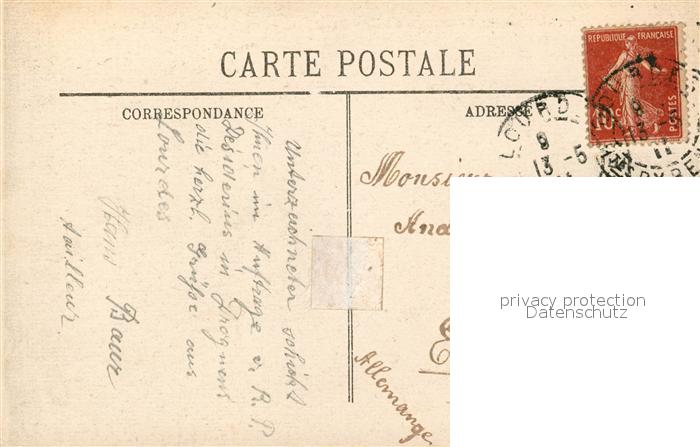 CARTE POSTALE
CORRESPONDANCE
ADRESSE
REPUBLIQUE FRANÇAISE
POSTES
10
LOURDES
9
13 -5
11
Unterzeichneter schickt
Ihnen im Auftrage v. R. P.
Desiderius in Drognens
die herzl. Grüße aus
Lourdes
Hans Baur
tailleur.
Monsieur
Allemange
privacy protection
Datenschutz